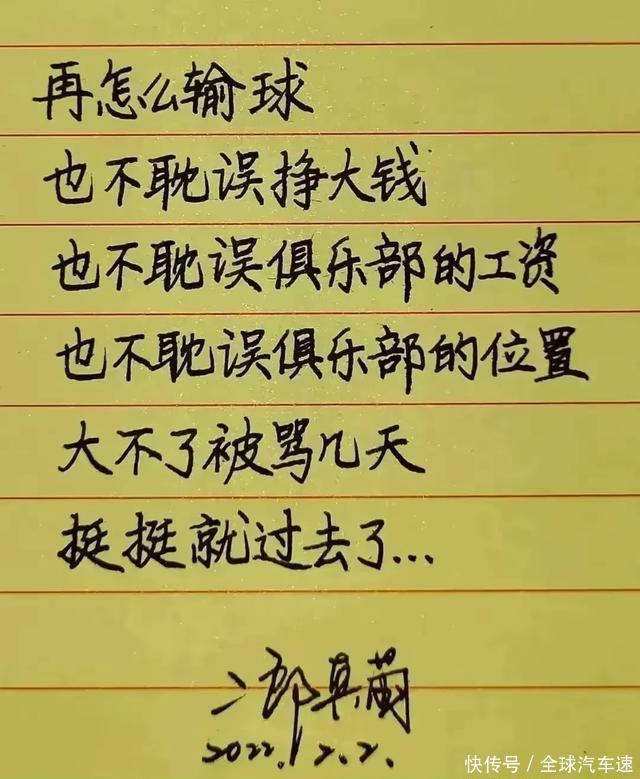 再怎么输球
也不耽误挣大钱
也不耽误俱乐部的工资
也不耽误俱乐部的位置
大不了被骂几天
挺挺就过去了...
二郎真萌
2022.2.2.
快传号/全球汽车速